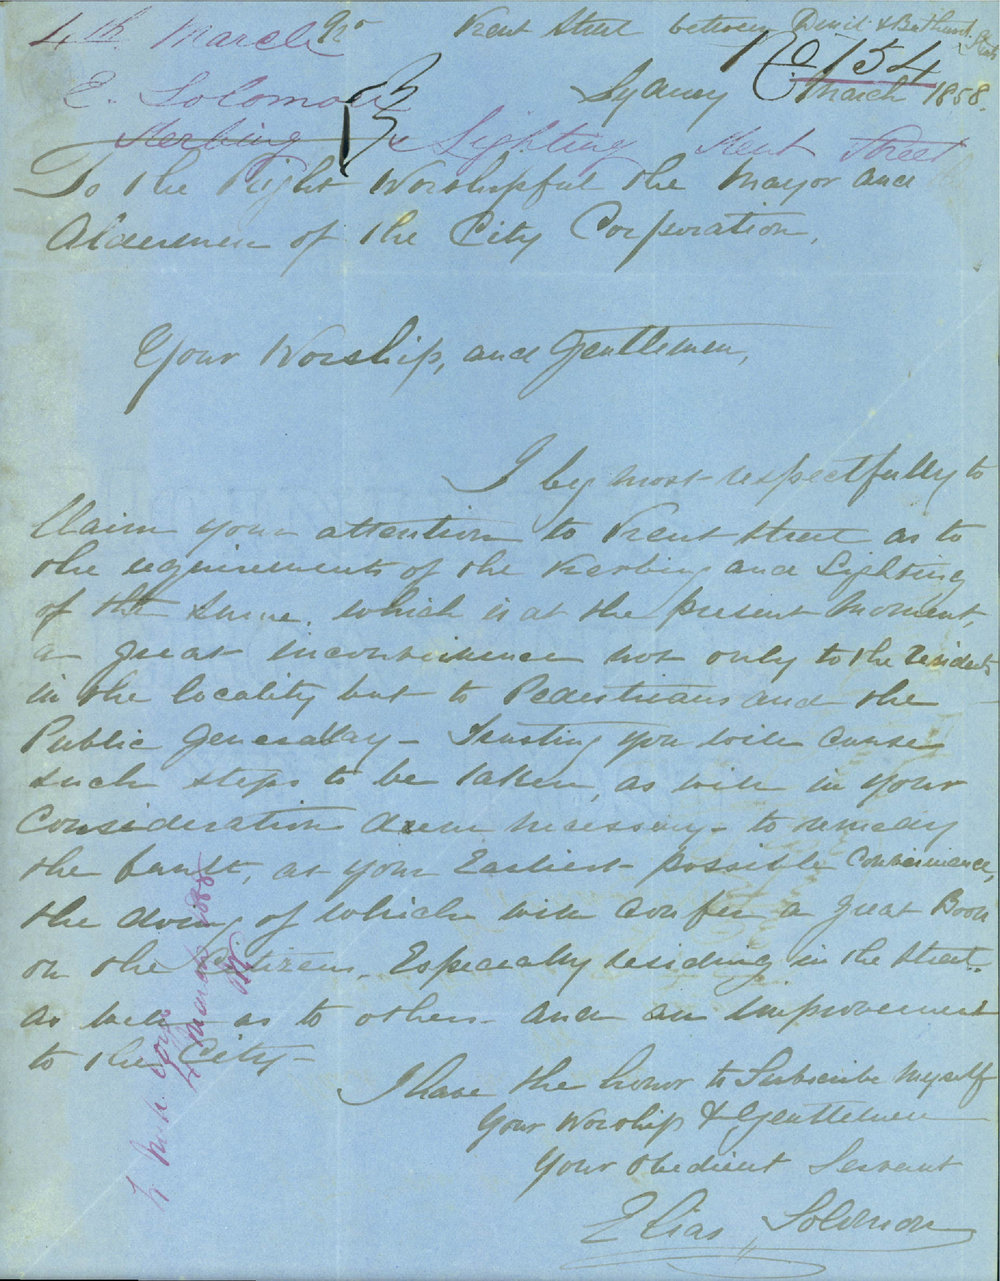 4th March Kent Street between Druit & Bathurst Streets
No 154
E. Solomon Sydney March 1858.
Kerbing & Lighting Kent Street
To the Right Worshipful the Mayor and
Aldermen of the City Corporation,
Your Worship, and Gentlemen,
I beg most respectfully to
Claim your attention to Kent Street as to
the requirements of the Kerbing and Lighting
of the Same. which is at the present Moment,
a great inconvenience not only to the residents
in the locality but to Pedestrians and the
Public Generally - Trusting you will cause
such steps to be taken, as will in your
Consideration deem necessary - to remedy
the fault, at your Earliest possible Convenience,
the doing of which will confer a great Boon
on the Citizens, Especially residing in the Street.
as well as to others - and an improvement
to the City -
I have the honor to Subscribe Myself
Your Worship & Gentlemen
Your Obedient Servant
Elias Solomon
4 March 1858